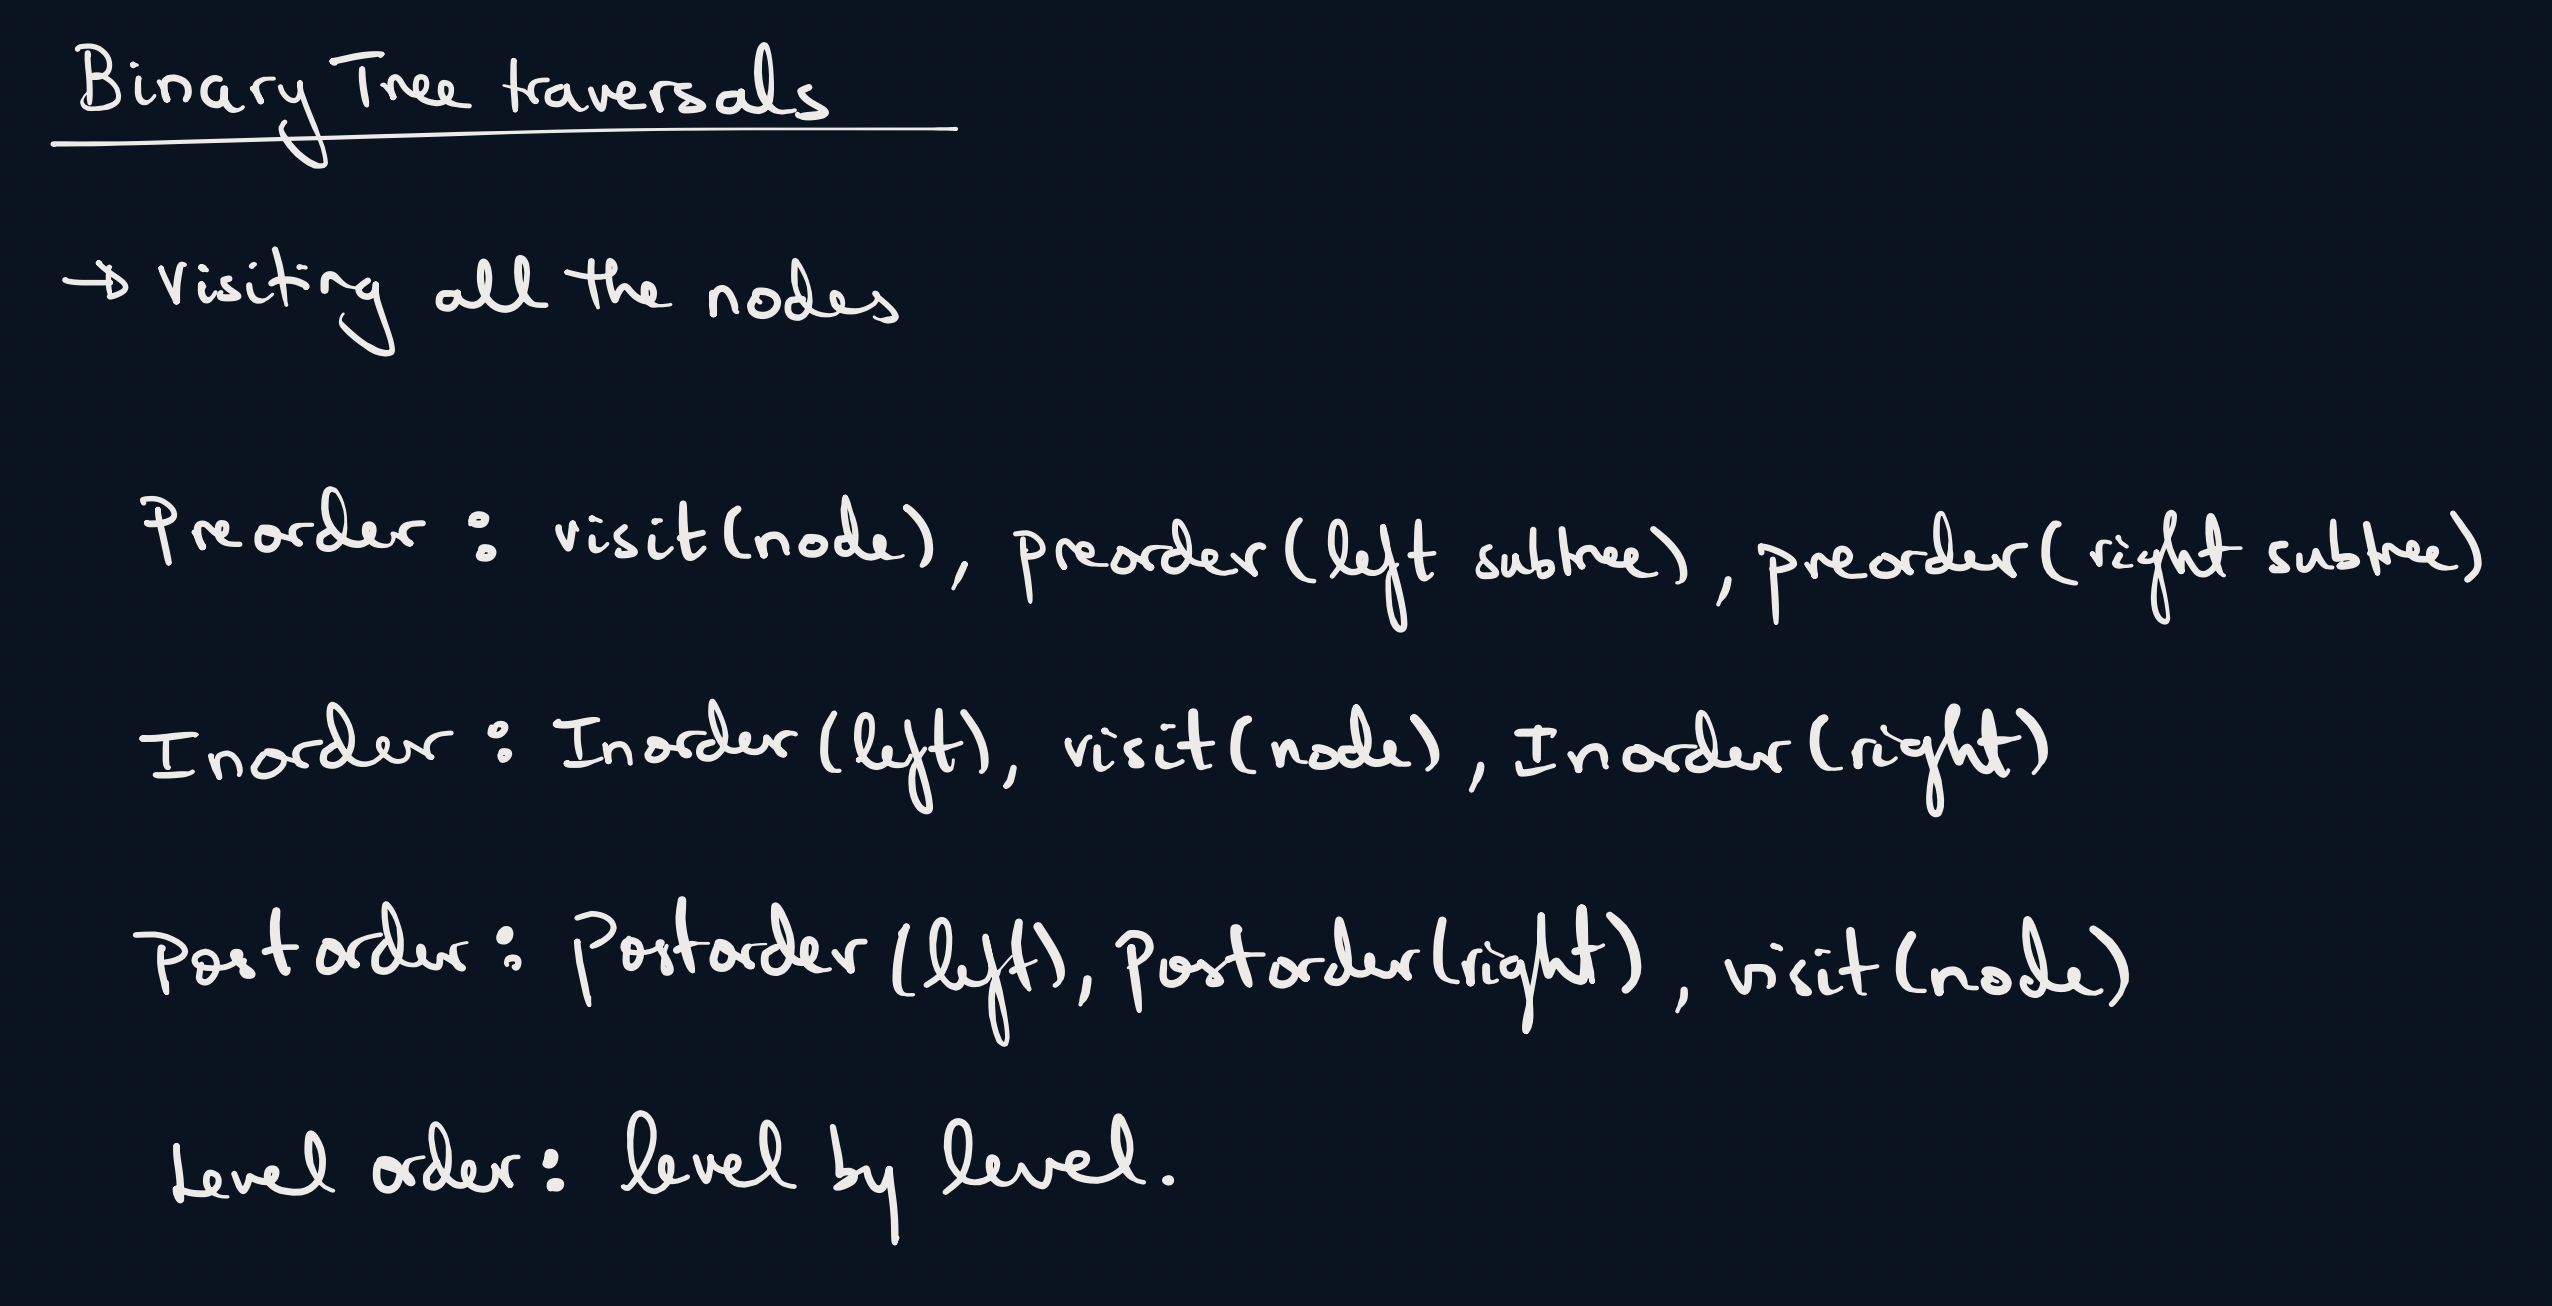 Binary Tree traversals
→ Visiting all the nodes
Preorder : visit(node), preorder(left subtree), preorder(right subtree)
Inorder : Inorder(left), visit(node), Inorder(right)
Postorder : Postorder(left), Postorder(right), visit(node)
Level order : level by level.